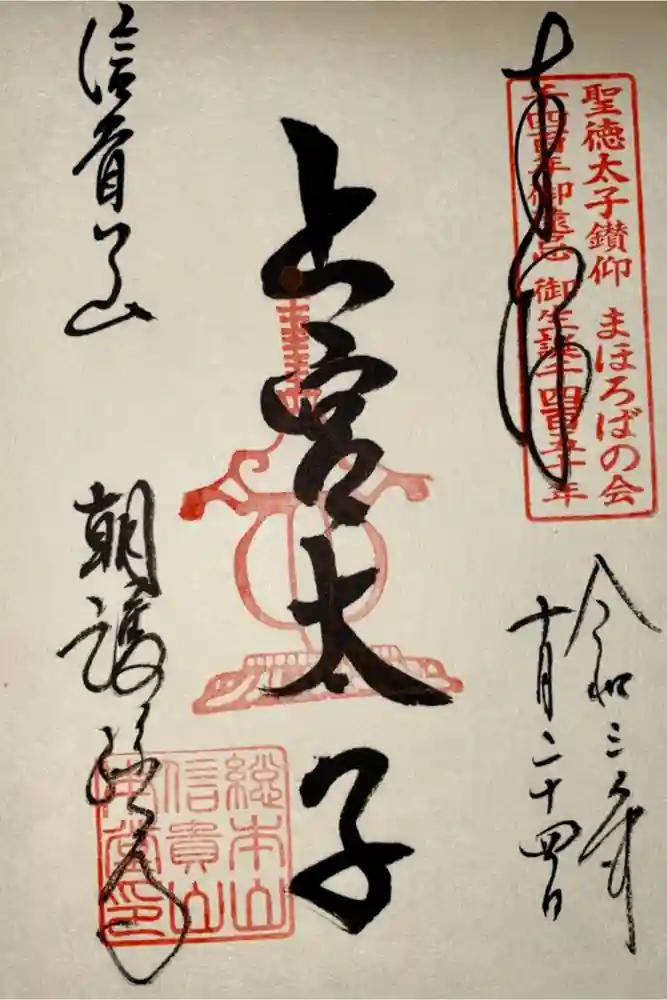 奉拝
聖徳太子鑽仰 まほろばの会
千四百年御遠忌 御生誕千四百五十年
令和三年
十月二十四日
上宮太子
信貴山
朝護孫子
総本山
信貴山
本堂印